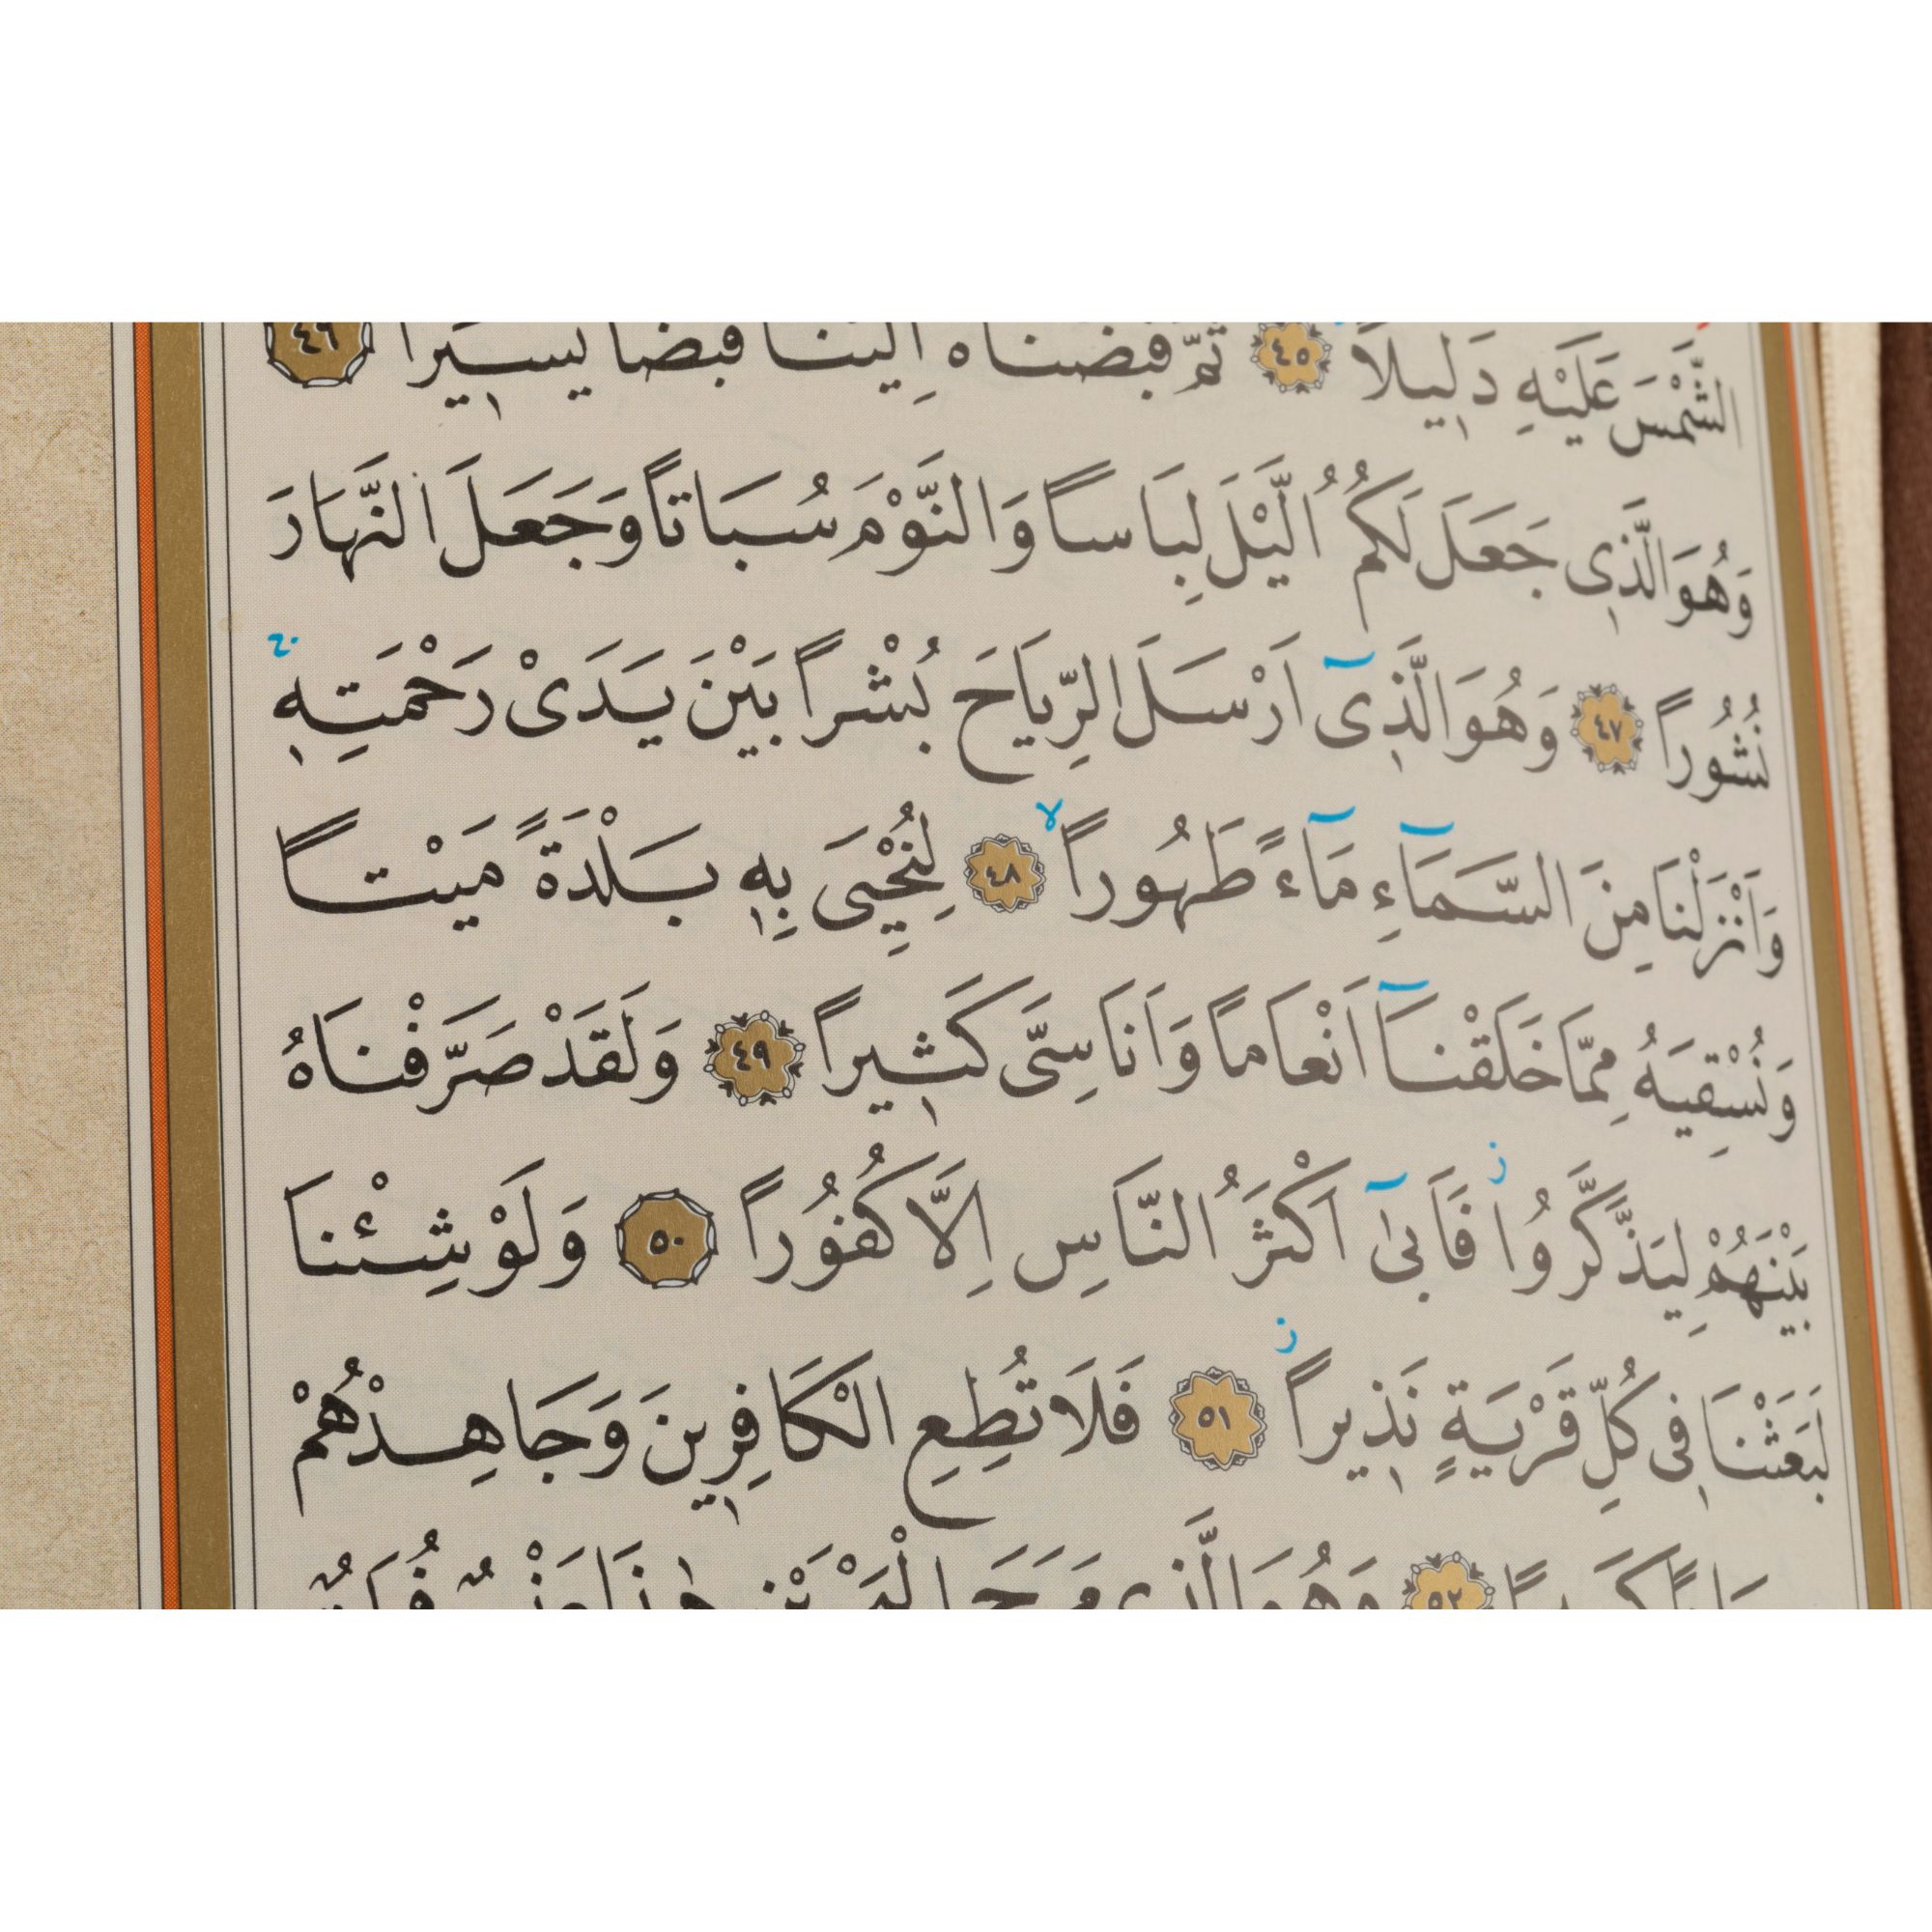 الشَّمْسَ عَلَيْهِ دَلِيلًا ٤٥ ثُمَّ قَبَضْنَاهُ اِلَيْنَا قَبْضًا يَسِيرًا ٤٦
وَهُوَ الَّذِى جَعَلَ لَكُمُ الَّيْلَ لِبَاسًا وَالنَّوْمَ سُبَاتًا وَجَعَلَ النَّهَارَ
نُشُورًا ٤٧ وَهُوَ الَّذِىٓ اَرْسَلَ الرِّيَاحَ بُشْرًا بَيْنَ يَدَىْ رَحْمَتِهٖ
وَاَنْزَلْنَا مِنَ السَّمَآءِ مَآءً طَهُورًا ٤٨ لِنُحْيِىَ بِهٖ بَلْدَةً مَيْتًا
وَنُسْقِيَهُ مِمَّا خَلَقْنَآ اَنْعَامًا وَاَنَاسِىَّ كَثٖيرًا ٤٩ وَلَقَدْ صَرَّفْنَاهُ
بَيْنَهُمْ لِيَذَّكَّرُوا فَاَبٰىٓ اَكْثَرُ النَّاسِ اِلَّا كُفُورًا ٥٠ وَلَوْ شِئْنَا
لَبَعَثْنَا فٖى كُلِّ قَرْيَةٍ نَذٖيرًا ٥١ فَلَا تُطِعِ الْكَافِرٖينَ وَجَاهِدْهُمْ
٥٢ وَهُوَ الَّذِى مَرَجَ الْبَحْرَيْنِ هٰذَا عَذْبٌ فُرَاتٌ